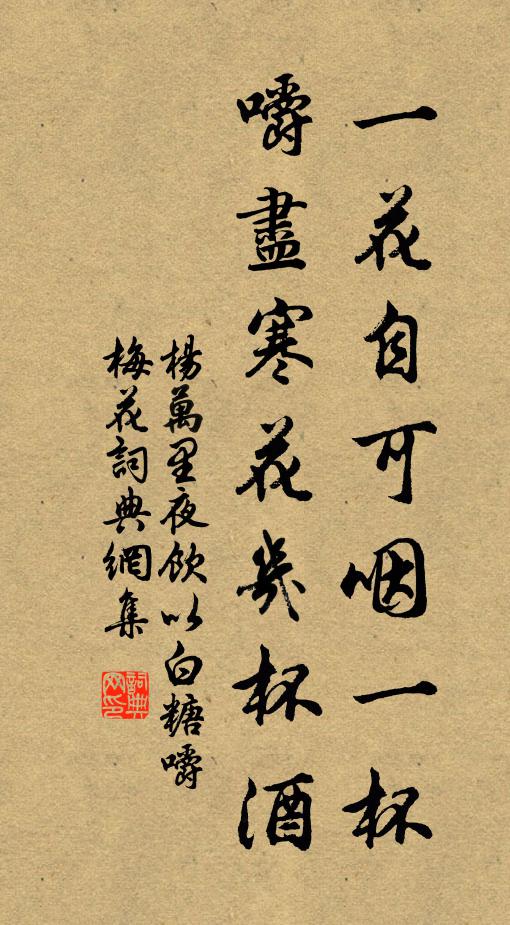 一花自可咽一杯
嚼盡寒花幾杯酒
楊萬里夜飲以白糖嚼
梅花詞典網集
詞典网印